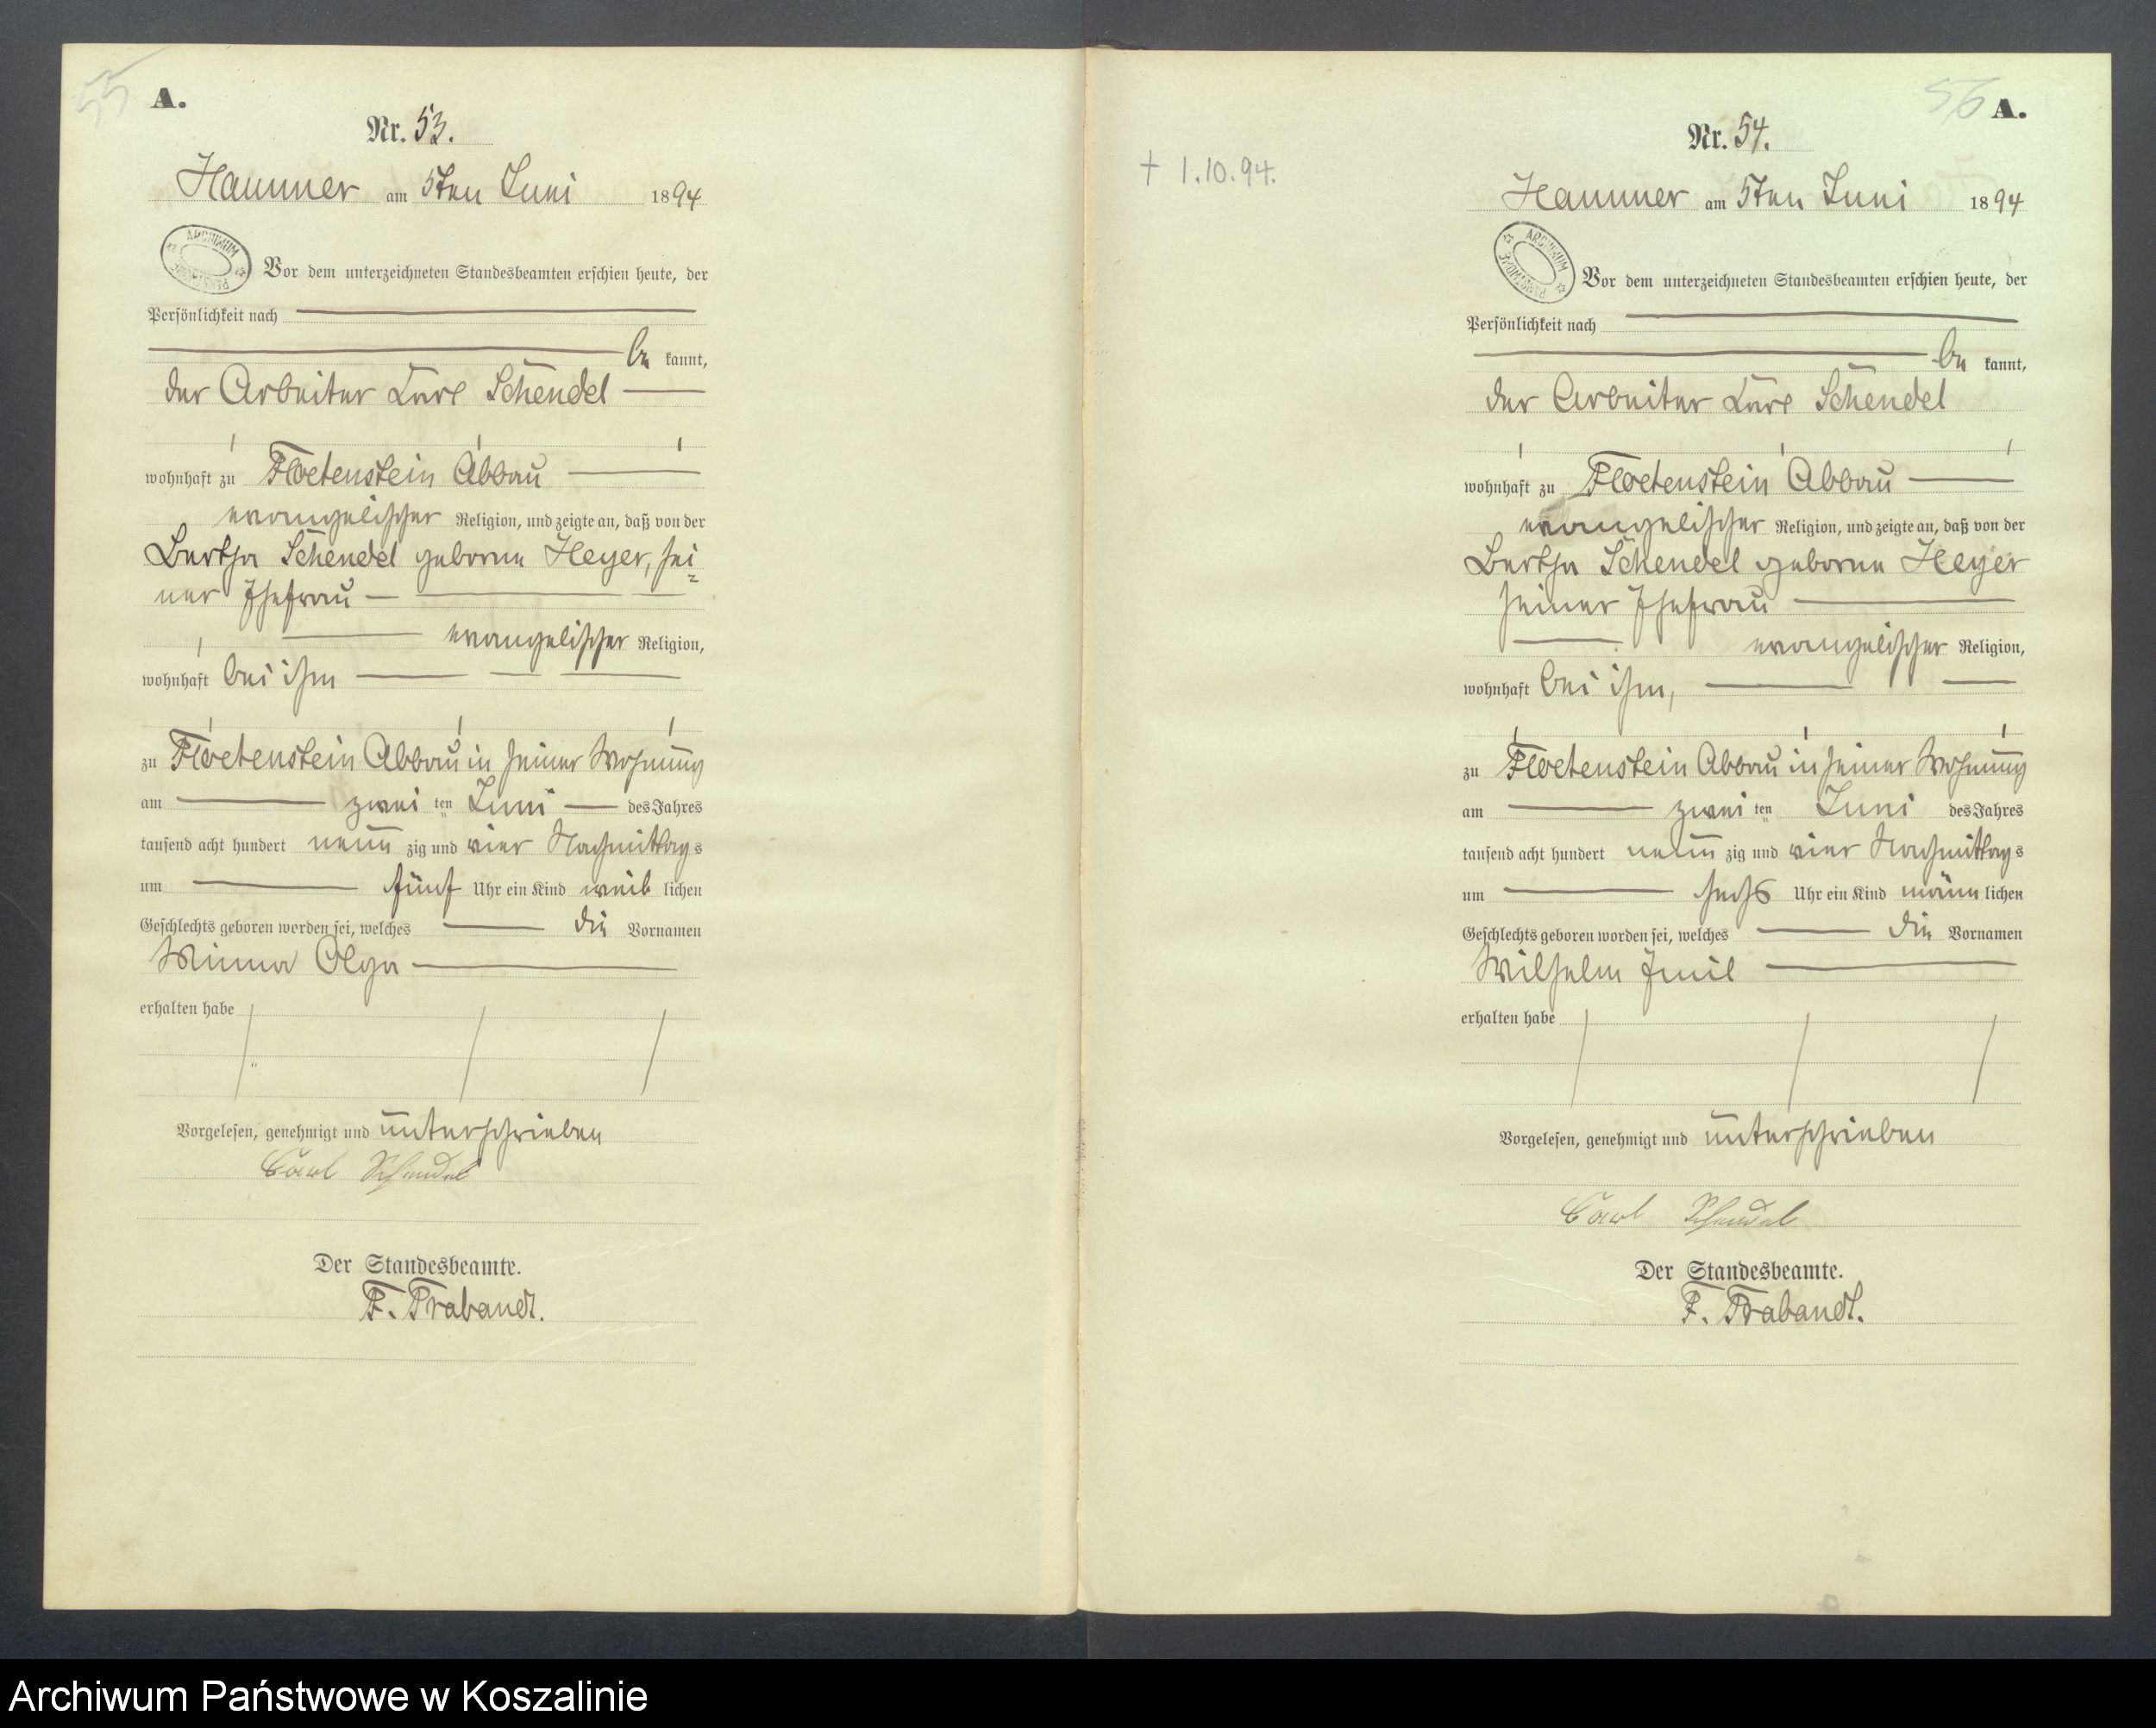 55
A.
Nr. 53.
Hammer am 5ten Juni 1894
ARCHIWUM PAŃSTWOWE
Vor dem unterzeichneten Standesbeamten erschien heute, der
Persönlichkeit nach
be kannt,
der Arbeiter Carl Schendel
wohnhaft zu Floetenstein Abbau
evangelischer Religion, und zeigte an, daß von der
Bertha Schendel geborne Heyer, sei=
ner Ehefrau
evangelischer Religion,
wohnhaft bei ihm
zu Floetenstein Abbau in seiner Wohnung
am zwei ten Juni des Jahres
tausend acht hundert neun zig und vier Nachmittags
um fünf Uhr ein Kind weib lichen
Geschlechts geboren worden sei, welches die Vornamen
Minna Olga
erhalten habe
Vorgelesen, genehmigt und unterschrieben
Carl Schendel
Der Standesbeamte.
F. Trabandt.
† 1.10.94.
56
A.
Nr. 54.
Hammer am 5ten Juni 1894
ARCHIWUM PAŃSTWOWE
Vor dem unterzeichneten Standesbeamten erschien heute, der
Persönlichkeit nach
be kannt,
der Arbeiter Carl Schendel
wohnhaft zu Floetenstein Abbau
evangelischer Religion, und zeigte an, daß von der
Bertha Schendel geborne Heyer
seiner Ehefrau
evangelischer Religion,
wohnhaft bei ihm,
zu Floetenstein Abbau in seiner Wohnung
am zwei ten Juni des Jahres
tausend acht hundert neun zig und vier Nachmittags
um sechs Uhr ein Kind männ lichen
Geschlechts geboren worden sei, welches die Vornamen
Wilhelm Emil
erhalten habe
Vorgelesen, genehmigt und unterschrieben
Carl Schendel
Der Standesbeamte.
F. Trabandt.
Archiwum Państwowe w Koszalinie